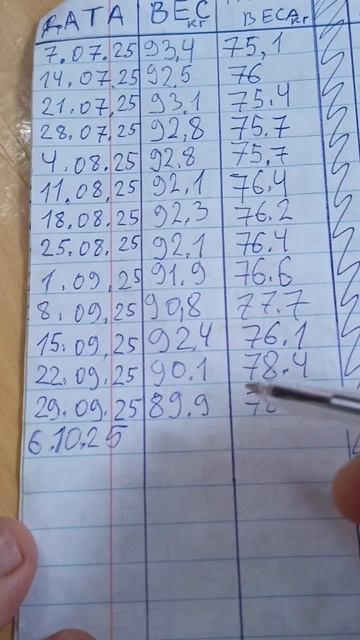 ДАТА ВЕС кг ВЕСА кг
7.07.25 93,4 75,1
14.07.25 92.5 76
21.07.25 93.1 75.4
28.07.25 92,8 75.7
4.08.25 92,8 75,7
11.08.25 92,1 76.4
18.08.25 92,3 76.2
25.08.25 92,1 76.4
1.09.25 91.9 76.6
8.09.25 90,8 77.7
15.09.25 92,4 76.1
22.09.25 90.1 78.4
29.09.25 89.9 78
6.10.25